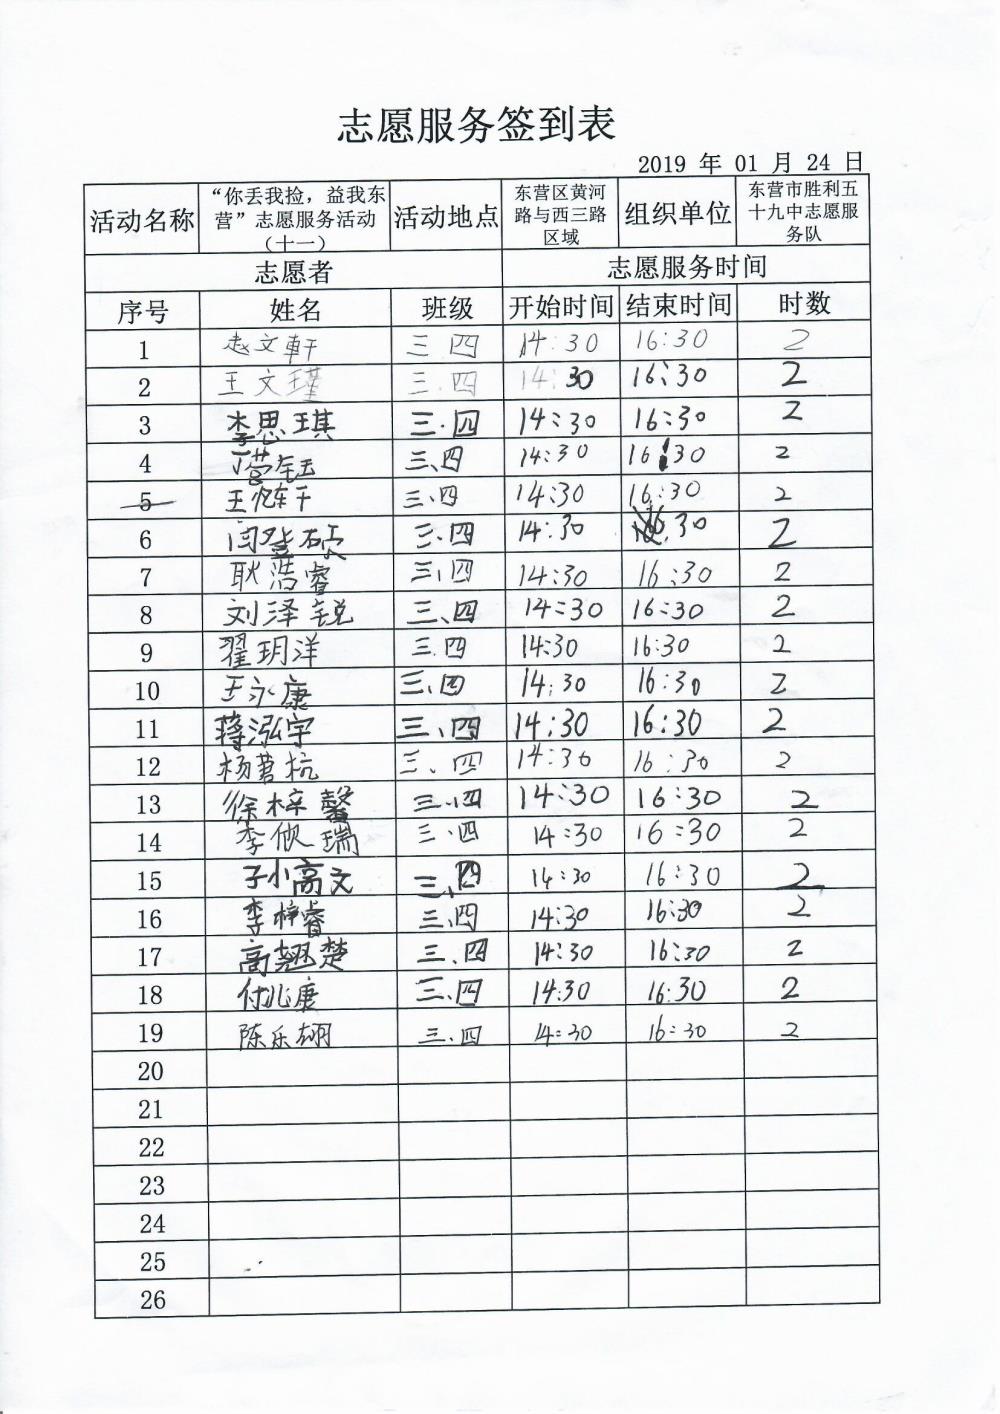 志愿服务签到表
2019 年 01 月 24 日
活动名称 “你丢我捡，益我东营”志愿服务活动（十一） 活动地点 东营区黄河路与西三路区域 组织单位 东营市胜利五十九中志愿服务队
志愿者 志愿服务时间
序号 姓名 班级 开始时间 结束时间 时数
1 赵文轩 三.四 14:30 16:30 2
2 王文瑾 三.四 14:30 16:30 2
3 李思琪 三.四 14:30 16:30 2
4 三、四 14:30 16:30 2
5 三、四 14:30 16:30 2
6 闫登硕 三、四 14:30 16:30 2
7 耿浩睿 三、四 14:30 16:30 2
8 刘泽锐 三、四 14:30 16:30 2
9 翟玥洋 三.四 14:30 16:30 2
10 王永康 三、四 14:30 16:30 2
11 蒋泓宇 三、四 14:30 16:30 2
12 三、四 14:30 16:30 2
13 徐梓馨 三.四 14:30 16:30 2
14 三.四 14:30 16:30 2
15 三、四 14:30 16:30 2
16 李梓睿 三、四 14:30 16:30 2
17 高翘楚 三、四 14:30 16:30 2
18 付兆康 三、四 14:30 16:30 2
19 陈乐翊 三、四 14:30 16:30 2
20
21
22
23
24
25
26